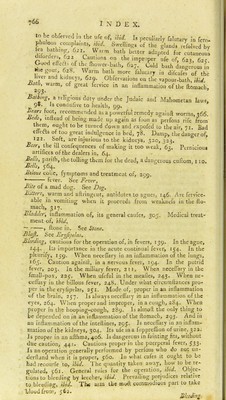 766 INDEX.
to be observed in the use of, ibid. Is peculiarly salutary in scro-
phulous complaints, ibid. Swellings of the glands resolved by
sea bathing, 622. Warm bath better adapted for cutaneous
disorders, 622 Cautions on the improper use of, 623, 625.
Good effects of the shower-bath, 627. Cold bath dangerous in
the gout, 628. Warm bath more salutary in diseases of the
liver and kidneys, 629. Observations on the vapour-bath, ibid.
Bath, warm, of great service in an inflammation of the stomach,
293.
Bathing, a religious duty under the Judaic and Mahometan laws,
98. Is conducive to health, 99.
Bears foot, recommended as a powerful remedy against worms, 366.
Beds, instead of being made up again as soon as persons rise from
them, ought to be turned down and exposed to the air, 71. Bad
effects of too great indulgence in bed, 78. Damp, the danger of,
121. Soft, are injurious to the kidneys, 320, 323.
Beer, the ill consequences of making it too weak, 65. Pernicious
artifices of the dealers in, 65.
Bells, parish, the tolling them for the dead, a dangerous custom, 110.
Bells, 564.
Bilious colic, symptoms and treatment of, 299.
fever. See Fever.
Bite of a mad dog. See Dog.
Bitters, warm and astringent, antidotes to agues, 146. Are service-
able in vomiting when it proceeds from weakness in the sto-
mach, 317.
Bladder, inflammation of, its general causes, 305. Medical treat-
ment of, ibid.
stone in. See Stone.
Blast. See Erysipelas.
Bleeding, cautions for the operation of, in fevers, 139. In the ague,
144. Its importance in the acute continual fever, 154. In the
pleurisy, 159. When necessary in an inflammation of the lungs,
165. Caution against, in a nervous fever, 194. In the putrid
fever, 203. In the miliary fever, 212. When necessary in the
small-pox, 225. When useful in the measles, 243. When ne-
cessary in the bilious fever, 248. Under what circumstances pro-
per in the erysipelas, 251 Mode of, proper in an inflammation
of the brain, 257. Is always necessary in an inflammation of the
eyes, 264. When proper and improper, in a cough, 284. When
proper in the hooping-cough, 289. Is almost the only thing to
be depended on in an inflammation of the stomach, 293. And in
an inflammation of the intestines, 295. Is necessary in an inflam-
mation of the kidneys, 304. Its use in a suppression of urine, 322.
Is proper in an asthma, 406. Is dangerous in fainting fits, without
due caution, 441. Cautions proper in the puerperal fever, 533.
Is an operation generally performed by persons who do not un-
derstand when it is proper, 560. In what cases it ought to be
had recourse to, ibid. The quantity taken away, how to be re-
gulated, 561. General rules for the operation, ibid. Objec-
tions to bleeding by leeches, ibid. Prevailing prejudices relative
to bleeding, ibid. The arm the most commodious part to take
blood from, 562.
Bleeding